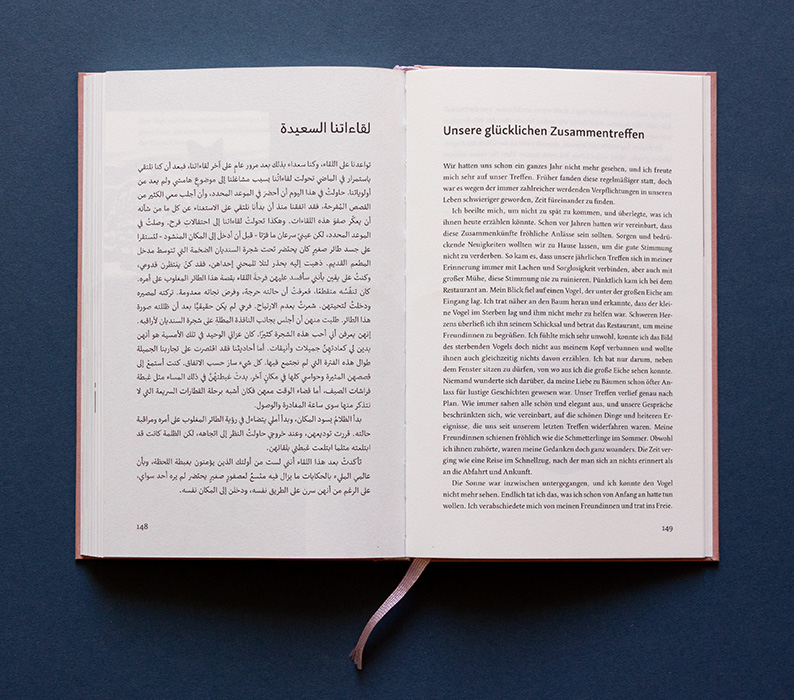 لقاءاتنا السعيدة
تواعدنا على اللقاء، وكنا سعداء بذلك بعد مرور عام على آخر لقاءاتنا، فبعد أن كنا نلتقي
باستمرار في الماضي تحولت لقاءاتُنا بسبب مشاغلنا إلى موضوعٍ هامشي ولم يعد من
أولوياتنا. حاولتُ في هذا اليوم أن أحضرَ في الموعد المحدد، وأن أجلب معي الكثير من
القصص المُفرحة، فقد اتفقنا منذ أن بدأنا نلتقي على الاستغناء عن كل ما من شأنه
أن يعكّر صفوَ هذه اللقاءات. وهكذا تحولتْ لقاءاتنا إلى احتفالات فرح. وصلتُ في
الموعد المحدد، لكن عينيّ سرعان ما قرّتا - قبل أن أدخل إلى المكان المنشود - لتستقرا
على جسد طائر صغيرٍ كان يحتضر تحت شجرة السنديان الضخمة التي تتوسط مدخل
المطعم القديم. ذهبت إليه بحذر لئلا تلمحني إحداهن، فقد كنّ ينتظرن قدومي،
وكنتُ على يقين بأنني سأفسد عليهن فرحةَ اللقاء بقصة هذا الطائر المغلوب على أمره.
كان تنفُسه متقطعًا، فعرفتُ أن حالته حرجة، وفرص نجاته معدومة. تركته لمصيره
ودخلتُ لتحيتهن. شعرتُ بعدم الارتياح. فرحي لم يكن حقيقيًا بعد أن ظللته صورة
هذا الطائر. طلبت منهن أن أجلس بجانب النافذة المطلةِ على شجرة السنديان لأراقبه.
إنهن يعرفن أني أحب هذه الشجرة كثيرًا. كان عزائي الوحيد في تلك الأمسية هو أنهن
بدين لي كعادتهنَّ جميلات وأنيقات. أما أحاديثنا فقد اقتصرت على تجاربنا الجميلة
طوال هذه الفترة التي لم نجتمع فيها. كل شيء سارَ حسب الاتفاق. كنت أستمعُ إلى
قصصهن المثيرة وحواسي كلها في مكانٍ آخر. بدتْ غبطتهُنَّ في ذلك المساء مثل غبطة
فراشات الصيف، أما قضاء الوقت معهن فكان أشبه برحلة القطارات السريعة التي لا
نتذكر منها سوى ساعة المغادرة والوصول.
بدأ الظلامُ يسود المكان، وبدأ أملي يتضاءل في رؤية الطائر المغلوب على أمره ومراقبة
حالته. قررت توديعهن، وعند خروجي حاولتُ النظر إلى اتجاهه، لكن الظلمة كانت قد
ابتلعته مثلما ابتلعت غبطتي بلقائهن.
تأكدتُ بعد هذا اللقاء أنني لست من أولئك الذين يؤمنون بغبطة اللحظة، وبأن
عالمي المليء بالحكايات ما يزال فيه متسعٌ لعصفورٍ صغيرٍ يحتضر لم يره أحد سواي،
على الرغم من أنهن سرن على الطريق نفسه، ودخلن إلى المكان نفسه.
148
Unsere glücklichen Zusammentreffen
Wir hatten uns schon ein ganzes Jahr nicht mehr gesehen, und ich freute
mich sehr auf unser Treffen. Früher fanden diese regelmäßiger statt, doch
war es wegen der immer zahlreicher werdenden Verpflichtungen in unseren
Leben schwieriger geworden, Zeit füreinander zu finden.
Ich beeilte mich, um nicht zu spät zu kommen, und überlegte, was ich
ihnen heute erzählen könnte. Schon vor Jahren hatten wir vereinbart, dass
diese Zusammenkünfte fröhliche Anlässe sein sollten. Sorgen und bedrü-
ckende Neuigkeiten wollten wir zu Hause lassen, um die gute Stimmung
nicht zu verderben. So kam es, dass unsere jährlichen Treffen sich in meiner
Erinnerung immer mit Lachen und Sorglosigkeit verbinden, aber auch mit
großer Mühe, diese Stimmung nie zu ruinieren. Pünktlich kam ich bei dem
Restaurant an. Mein Blick fiel auf einen Vogel, der unter der großen Eiche am
Eingang lag. Ich trat näher an den Baum heran und erkannte, dass der klei-
ne Vogel im Sterben lag und ihm nicht mehr zu helfen war. Schweren Her-
zens überließ ich ihn seinem Schicksal und betrat das Restaurant, um meine
Freundinnen zu begrüßen. Ich fühlte mich sehr unwohl, konnte ich das Bild
des sterbenden Vogels doch nicht aus meinem Kopf verbannen und wollte
ihnen auch gleichzeitig nichts davon erzählen. Ich bat nur darum, neben
dem Fenster sitzen zu dürfen, von wo aus ich die große Eiche sehen konnte.
Niemand wunderte sich darüber, da meine Liebe zu Bäumen schon öfter An-
lass für lustige Geschichten gewesen war. Unser Treffen verlief genau nach
Plan. Wie immer sahen alle schön und elegant aus, und unsere Gespräche
beschränkten sich, wie vereinbart, auf die schönen Dinge und heiteren Er-
eignisse, die uns seit unserem letzten Treffen widerfahren waren. Meine
Freundinnen schienen fröhlich wie die Schmetterlinge im Sommer. Obwohl
ich ihnen zuhörte, waren meine Gedanken doch ganz woanders. Die Zeit ver-
ging wie eine Reise im Schnellzug, nach der man sich an nichts erinnert als
an die Abfahrt und Ankunft.
Die Sonne war inzwischen untergegangen, und ich konnte den Vogel
nicht mehr sehen. Endlich tat ich das, was ich schon von Anfang an hatte tun
wollen. Ich verabschiedete mich von meinen Freundinnen und trat ins Freie.
149